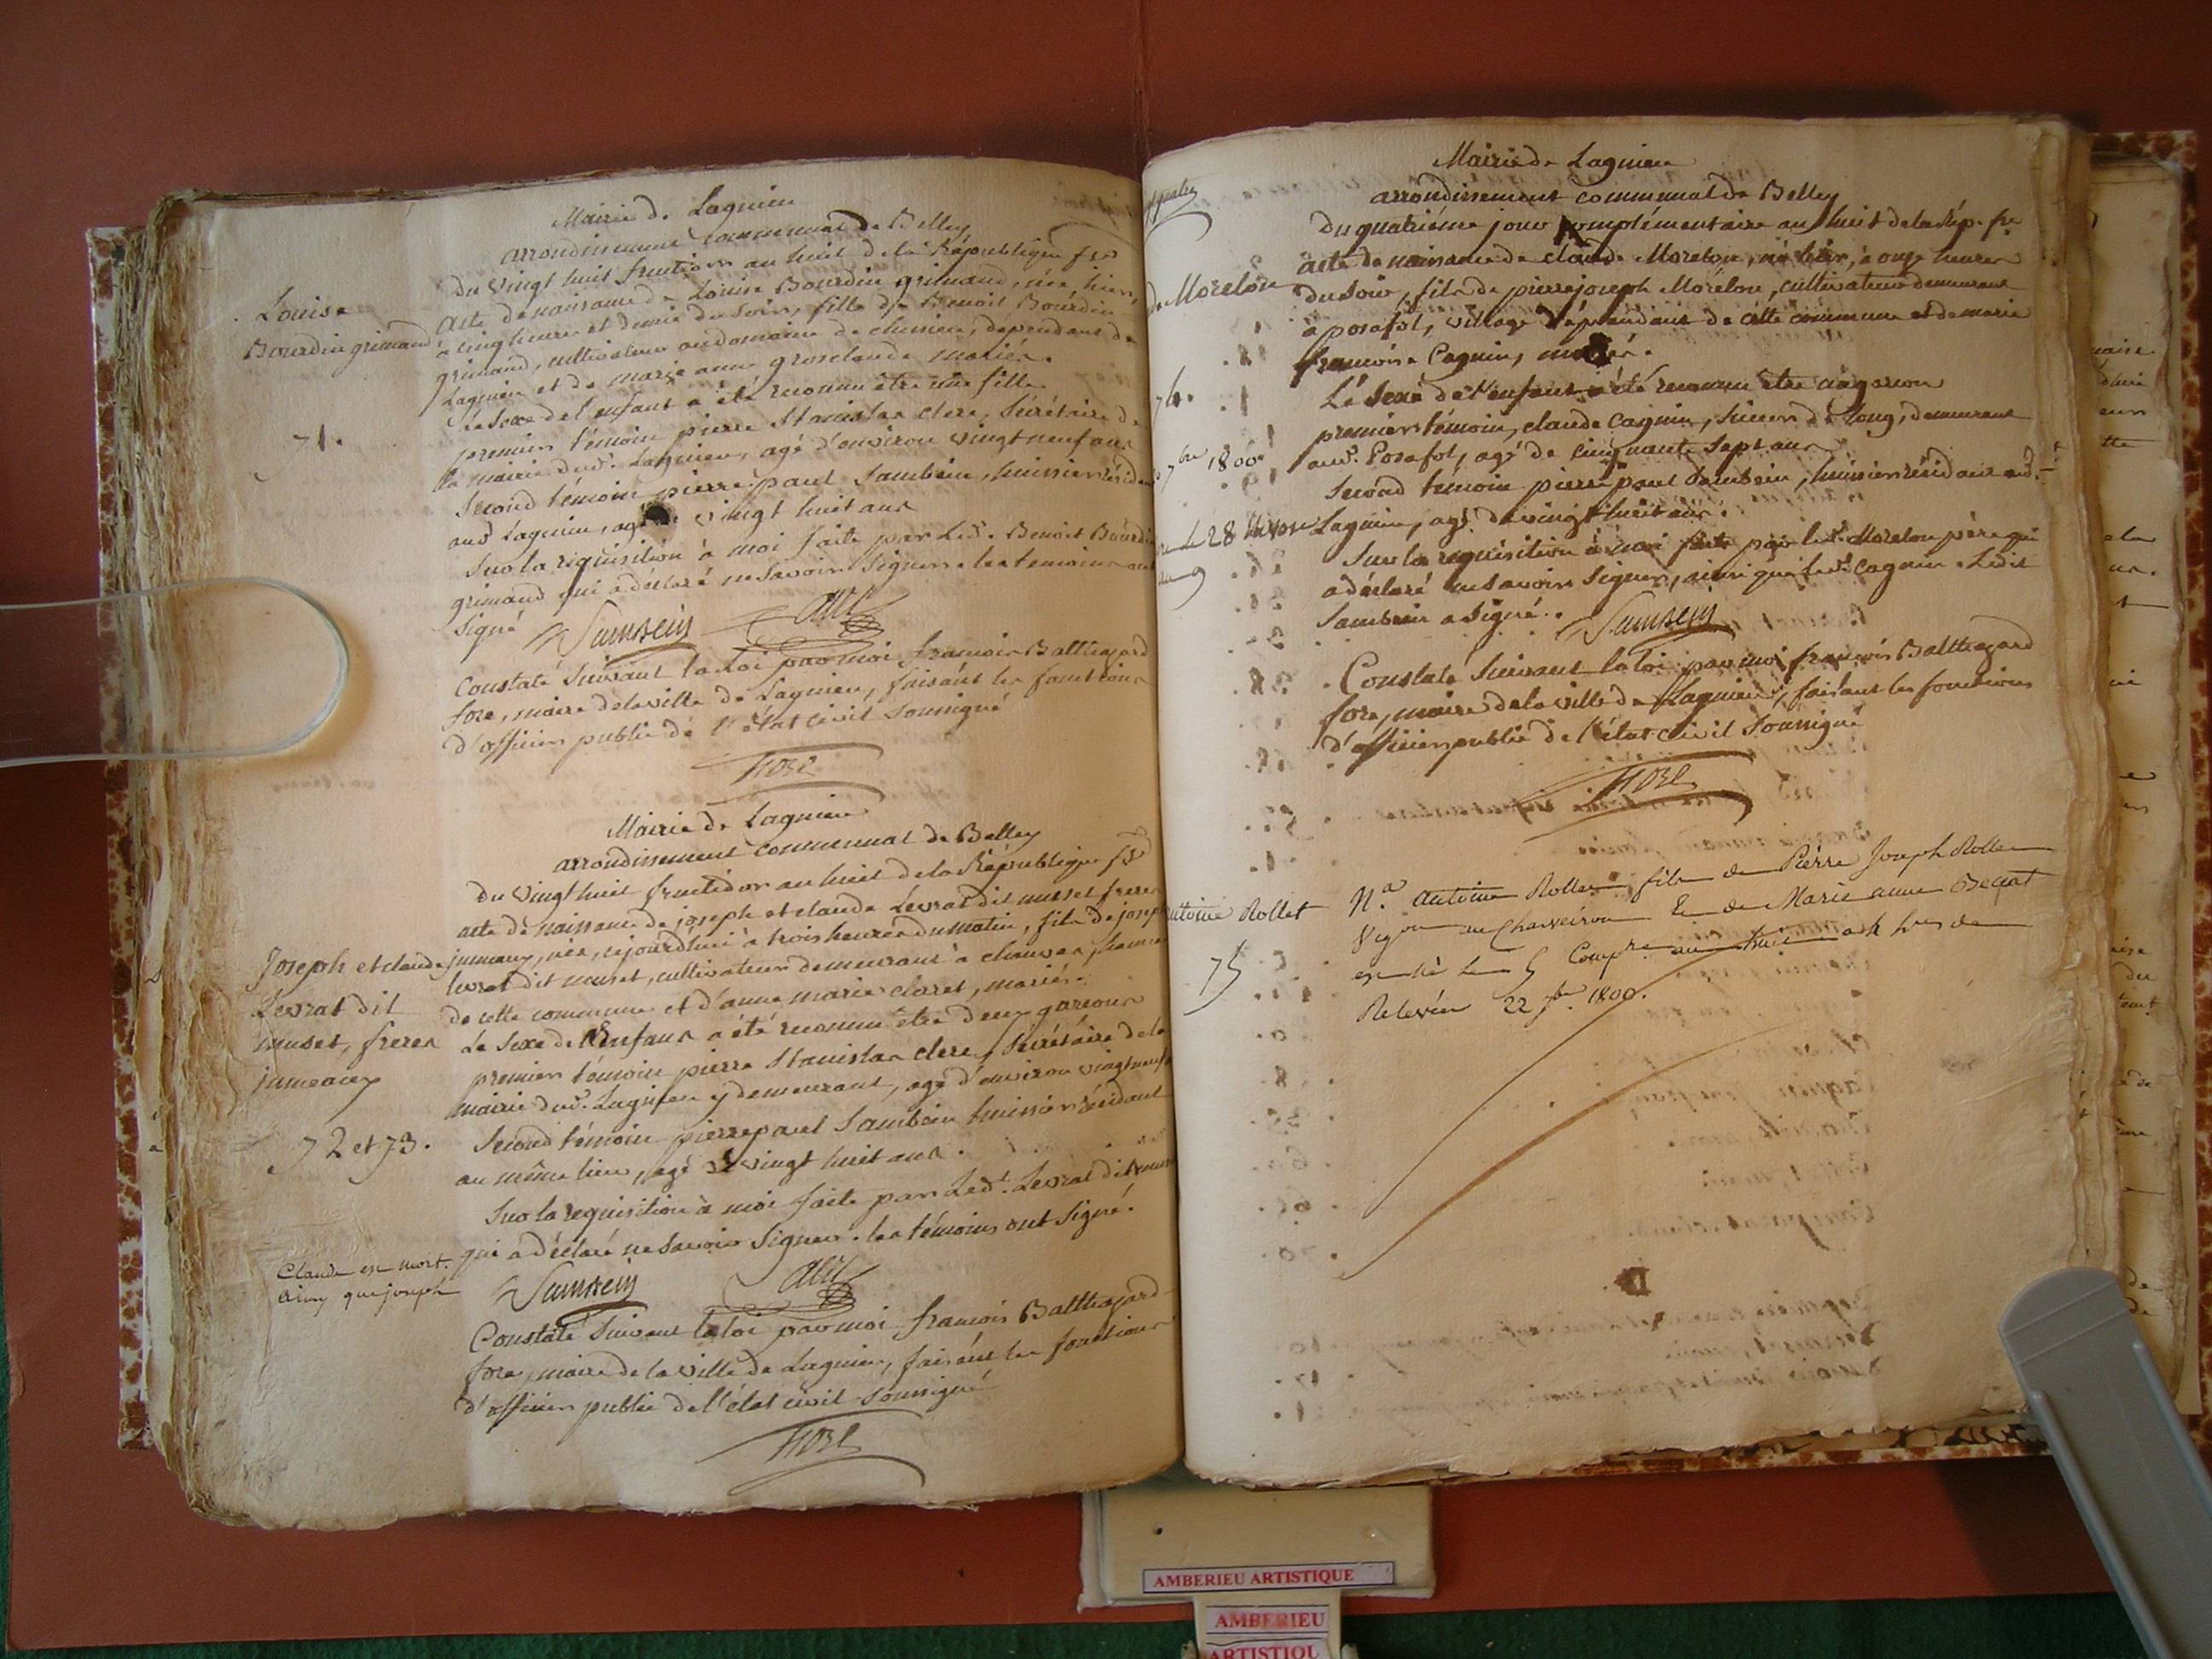 Mairie de Lagnieu
arrondissement communal de Belley
Du vingt huit fructidor an huit de la République fse
acte de naissance de Louise Bourdin grimaud, née hier,
à cinq heures et demie du soir, fille de Benoit Bourdin
grimaud, cultivateur au domaine de chenieu, dependant de
Lagnieu et de marie anne grosclaude mariés.
Le Sexe de l'enfant a été reconnu être une fille
premier témoin pierre Stanislas clerc, Sécrétaire de
la mairie dud. Lagnieu, agé d'environ vingt neuf ans
Second témoin pierre paul Sambein, huissier résid
aud Lagnieu, agé de vingt huit ans
Sur la réquisition à moi faite par Led. Benoit Bourdin
grimaud qui a déclaré ne Savoir Signer. les temoins ont
Signé
Sambein
Constaté Suivant la Loi par moi francois Balthazard
fore, maire de la ville de Lagnieu, faisant les fonctions
d'officier public de l'état civil Soussigné
fore
Louise
Bourdin grimaud
71.
Mairie de Lagnieu
arrondissement communal de Belley
Du vingt huit fructidor an huit de la République fse
acte de naissance de joseph et claude Levrat dit muset freres
jumeaux, nés, cejourd'hui à trois heures du matin, fils de joseph
levrat dit muset, cultivateur demeurant à
de cette commune et d'anne marie claret, mariés.
Le Sexe de l'Enfans a été reconnu être deux garcons
premier témoin pierre Stanislas clerc, Sécrétaire de la
mairie dud. Lagnieu y demeurant, agé d'environ vingt neuf
Second témoin pierre paul Sambein huissier résidant
au même lieu, agé de vingt huit ans.
Sur la requisition à moi faite par Led. Levrat dit muset
qui a déclaré ne Savoir Signer. les témoins ont Signé.
Sambein
Constaté Suivant la loi par moi francois Balthazard
fore, maire de la ville de Lagnieu, faisant les fonctions
d'officier public de l'état civil Soussigné
fore
Joseph et claude
Levrat dit
muset, freres
jumeaux
72 et 73.
Claude est mort.
ainsy que joseph
Mairie de Lagnieu
arrondissement communal de Belley
Du quatriéme jour complémentaire an huit de la Rép. fse
acte de naissance de claude Morelon, né hier, à onze heures
du soir, fils de pierre joseph Morélon, cultivateur demeurant
a posafol, village dépendant de cette commune et de marie
francoise Cagnin, mariés.
Le Sexe de l'enfant a été reconnu etre un garcon
premier témoin, claude Cagnin, Scieur de Long, demeurant
aud. Posafol, agé de cinquante Sept ans
Second temoin pierre paul Sambein, huissier résidant aud.
Lagnieu, agé de vingt huit ans.
Sur la requisition à moi faite par led. Morelon père qui
a déclaré ne savoir Signer, ainsi que led. Cagnin. Ledit
Sambein a Signé.
Sambein
Constaté Suivant la loi par moi francois Balthazard
fore, maire de la ville de Lagnieu, faisant les fonctions
d'officier public de l'état civil Soussigné
fore
de Morelon
74.
7bre 1800
28
an 9
antoine Rollet
75
N.a antoine Rollet fils de Pierre Joseph Rollet
Vigon au Charveiron Et de Marie anne Begat
est né Le 5 Compre. an huit a 4 hres de
Relevée 22 7bre 1800.
AMBERIEU ARTISTIQUE
AMBERIEU
ARTISTIQU